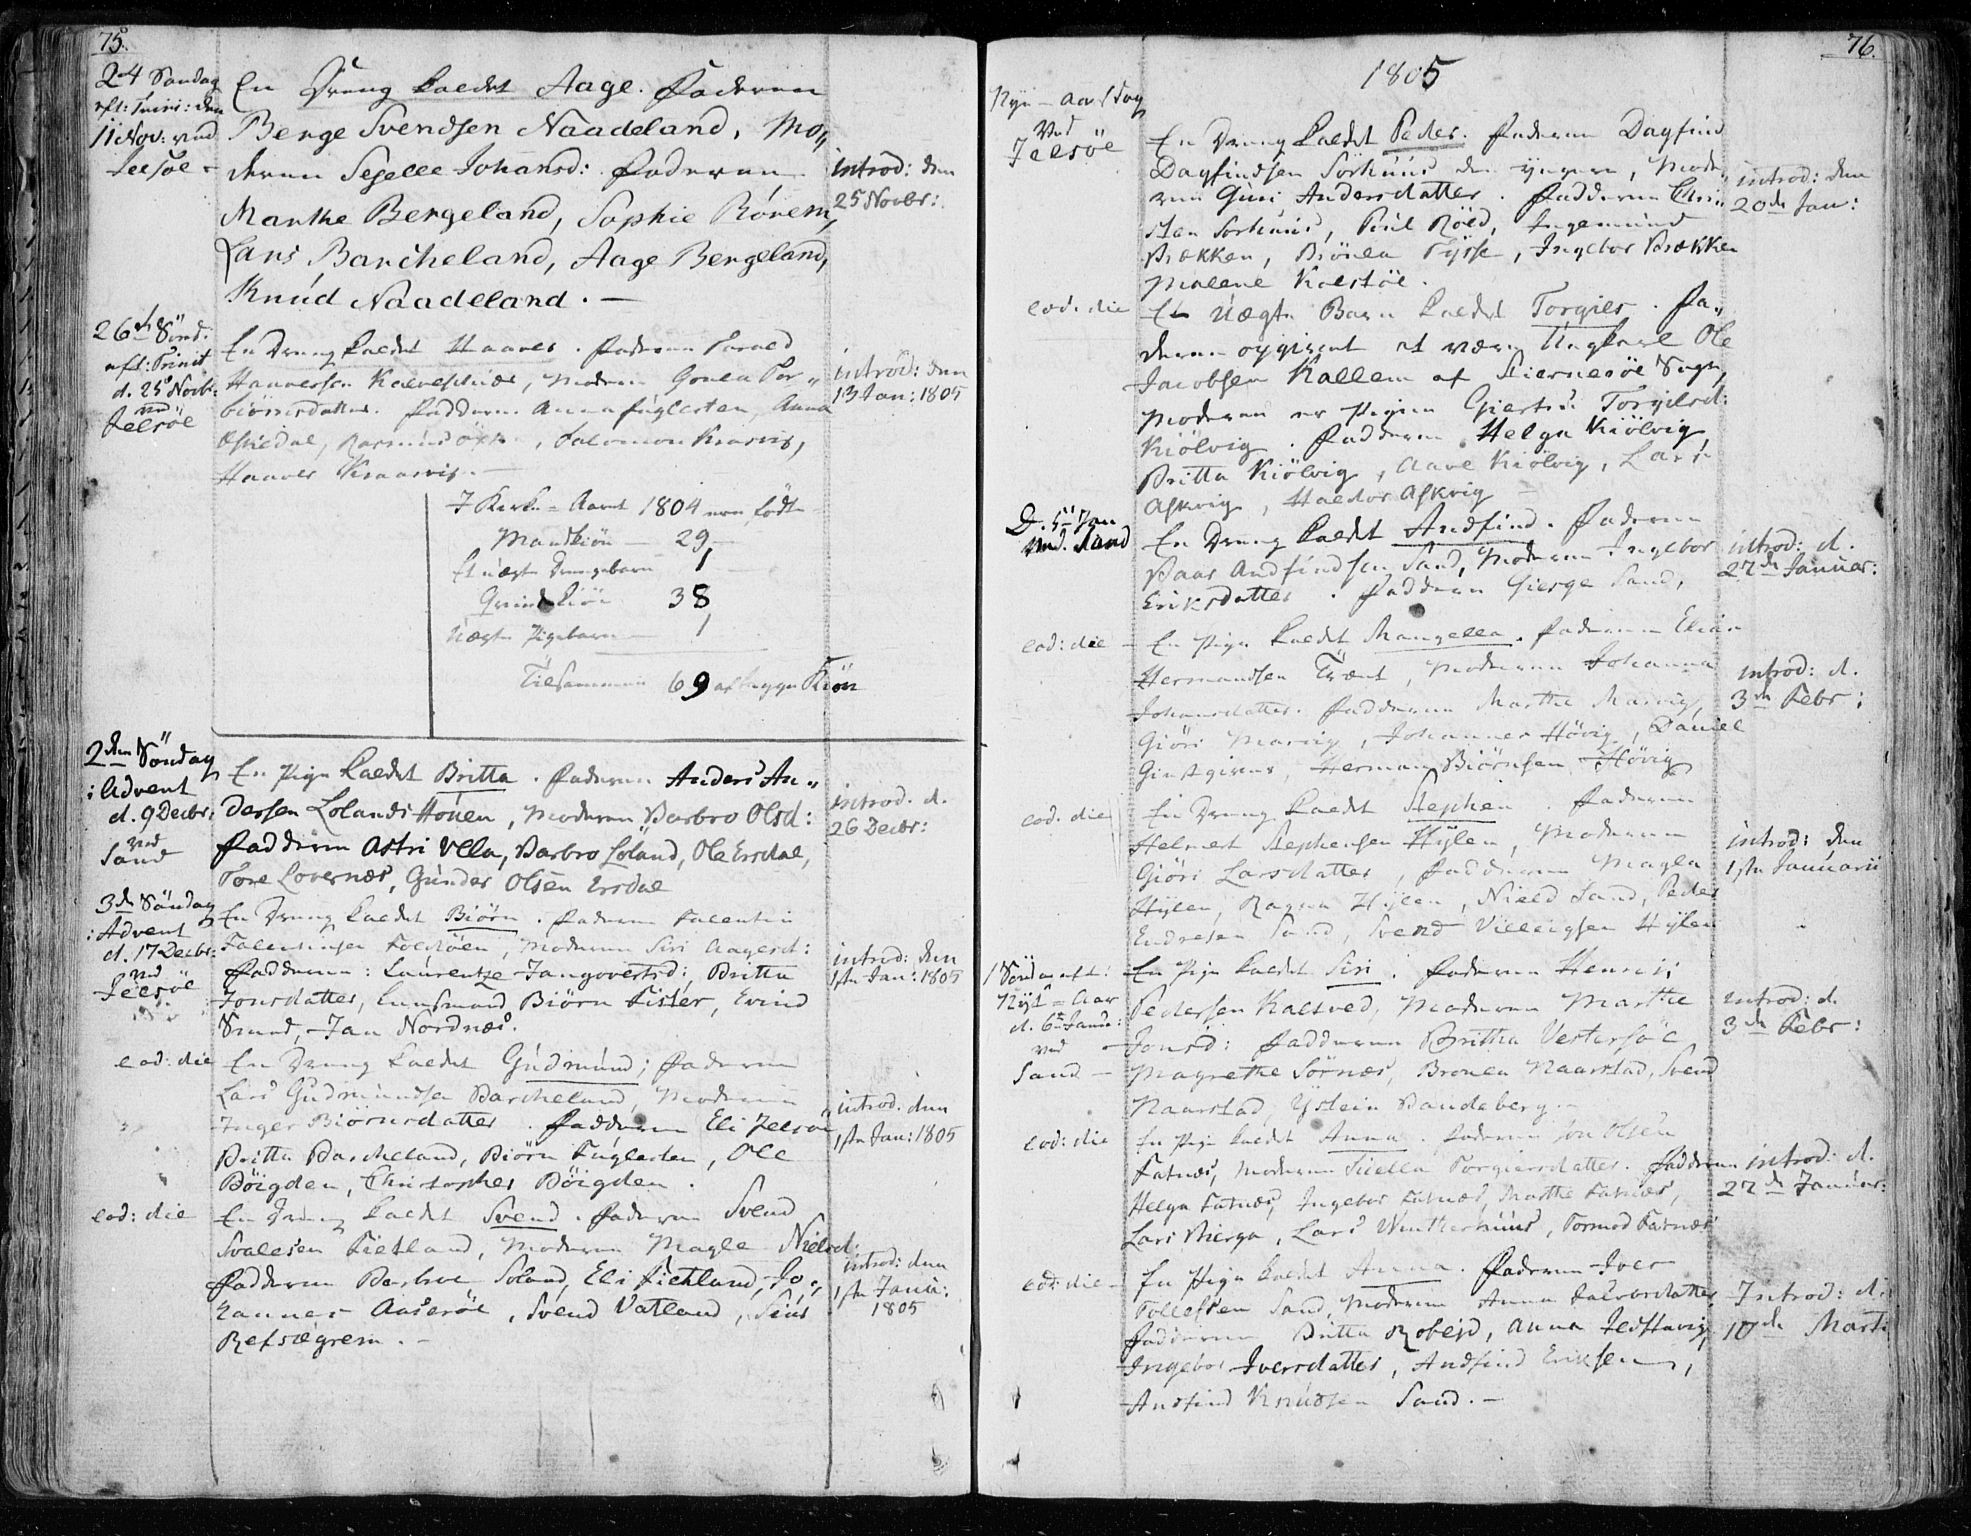 75.
24 Søndag
eft: Trini: den
11 Nov: ved
Jelsöe -
En Dreng kaldet Aage. Faderen
Berge Svendsen Naadeland, Mo„
deren Segelle Johansd: Fadderne
Marthe Bergeland, Sophie Rörem,
Lars Barcheland, Aage Bergeland,
Knud Naadeland. —
introd: den
25 Novbr:
26de Sönd.
eft: Trinit
d. 25 Novb:
ved
Jelsöe
En Dreng kaldet Haaver. Faderen
Haaversen Moderen Gonla Tor„
biörnsdatter. Faddere Anna Fuglesten, Anna
Rasmus Salomon
Haaver
introd: den
13 Jan: 1805
I Kirke-Aaret 1804 ere födte
Mandkiön — 29 —
Et uægte Drengebarn 1
Qvindekiön 38
Uægte Pigebarn — 1
Tilsammen 69 af begge Kiön
2den Söndag
i Advent
d. 9 Decbr:
ved
Sand
En Pige kaldet Britta. Faderen Anders An„
dersen Lolands Houen, Moderen Barbro Olsd:
Fadderne Astri Vela, Barbro Loland, Ole Ersdal,
Tore Lovernæs, Gunder Olsen Ersdal
introd. d.
26 Decbr:
3de Söndag
i Advent
d. 17 Decbr:
ved
Jelsöe
En Dreng kaldet Biörn. Faderen Falentin
Falentinsen Foldöen, Moderen Siri Aagesd:
Fadderne: Laurentze Britta
Jonsdatter, Biörn Fister, Evind
Jan Nordnæs.
introd: den
1ste Jan: 1805
eod: die
En Dreng kaldet Gudmund; Faderen
Lars Gudmundsen Barcheland, Moderen
Inger Biörnsdatter. Fadderne Eli Jelsöe
Britta Barcheland, Biörn Fuglesten, Ole
Böigden, Christopher Böigden.
introd. den
1ste Jan: 1805
eod: die
En Dreng kaldet Svend. Faderen Svend
Svalesen Fietland, Moderen Magle Nielsd:
Fadderne Barbro Soland, Eli Fietland, Jo„
hannes Aaseröe, Svend Vatland,
Refsegrem. —
introd: den
1ste Janu:
1805
76.
1805
Nye-Aars Dag
Ved
Jelsöe
En Dreng kaldet Peder. Faderen Dagfind
Dagfindsen Sörhuus den yngere, Mode„
ren Guri Andersdatter. Fadderne Chri„
sten Sörhuus, Poul Röed, Ingemund
Brækken, Brönla Ingebor Brækken
Malene Kolstöe.
introd: den
20de Jan:
eod: die
Et Uægte Barn kaldet Torgils. Fa„
deren opgivent at være Ungkarl Ole
Jacobsen Hallem af Sierneröe Sogn,
Moderen er Pigen Giertru Torgilsd:
Kiölvig. Fadderne Helga Kiölvig,
Britta Kiölvig, Aavel Kiölvig, Lars
Askvig, Haldor Askvig —
D. 5te Jan
ved. Sand
En Dreng kaldet Andfind. Faderen
Baar Andfindsen Sand, Moderen Ingebor
Eriksdatter. Faddere Gierge Sand,
introd: d.
27de Januar:
eod: die —
En Pige kaldet Mangella. Faderen Elias
Hermandsen Moderen Johanna
Johansdatter. Fadderne Marthe Marvig,
Giöri Marvig, Johannes Hövig, Daniel
Giestgiver, Herman Biörnsen Hövig
introd: d.
3de Febr:
eod: die
En Dreng kaldet Stephen. Faderen
Helmert Stephensen Hylen, Moderen
Giöri Larsdatter, Fadderne Magla
Hylen, Ragna Hylen, Nield Sand, Peder
Endresen Sand, Svend Villeigsen Hylen
introd: den
1ste Januarii
1 Sönd. eft:
Nyt-Aar
d. 6te Janu:
ved
Sand —
En Pige kaldet Siri. Faderen Henrik
Pedersen Kaltved, Moderen Marthe
Jonsd: Fadderne Britha Vestersöe
Magrethe Sörnæs, Bronla Naarstad, Svend
Naarstad, Ystein Bandeberg. —
introd: d.
3de Febr:
eod: die
En Pige kaldet Anna. Faderen Jon Olsen
Fatnæs, Moderen Siella Torgiersdatter. Fadderne
Helga Fatnæs, Ingebor Fatnæs, Marthe Fatnæs,
Lars Bierga, Lars Winterhuus, Tormod Fatnæs
introd: d.
27de Januar:
eod: die —
En Pige kaldet Anna. Faderen Iver
Tollefsen Sand, Moderen Anna Halvorsdatter
Fadderne Britta Anna
Ingebor Iversdatter, Andfind Eriksen,
Andfind Knudsen Sand. —
Introd: d.
10de Mart: